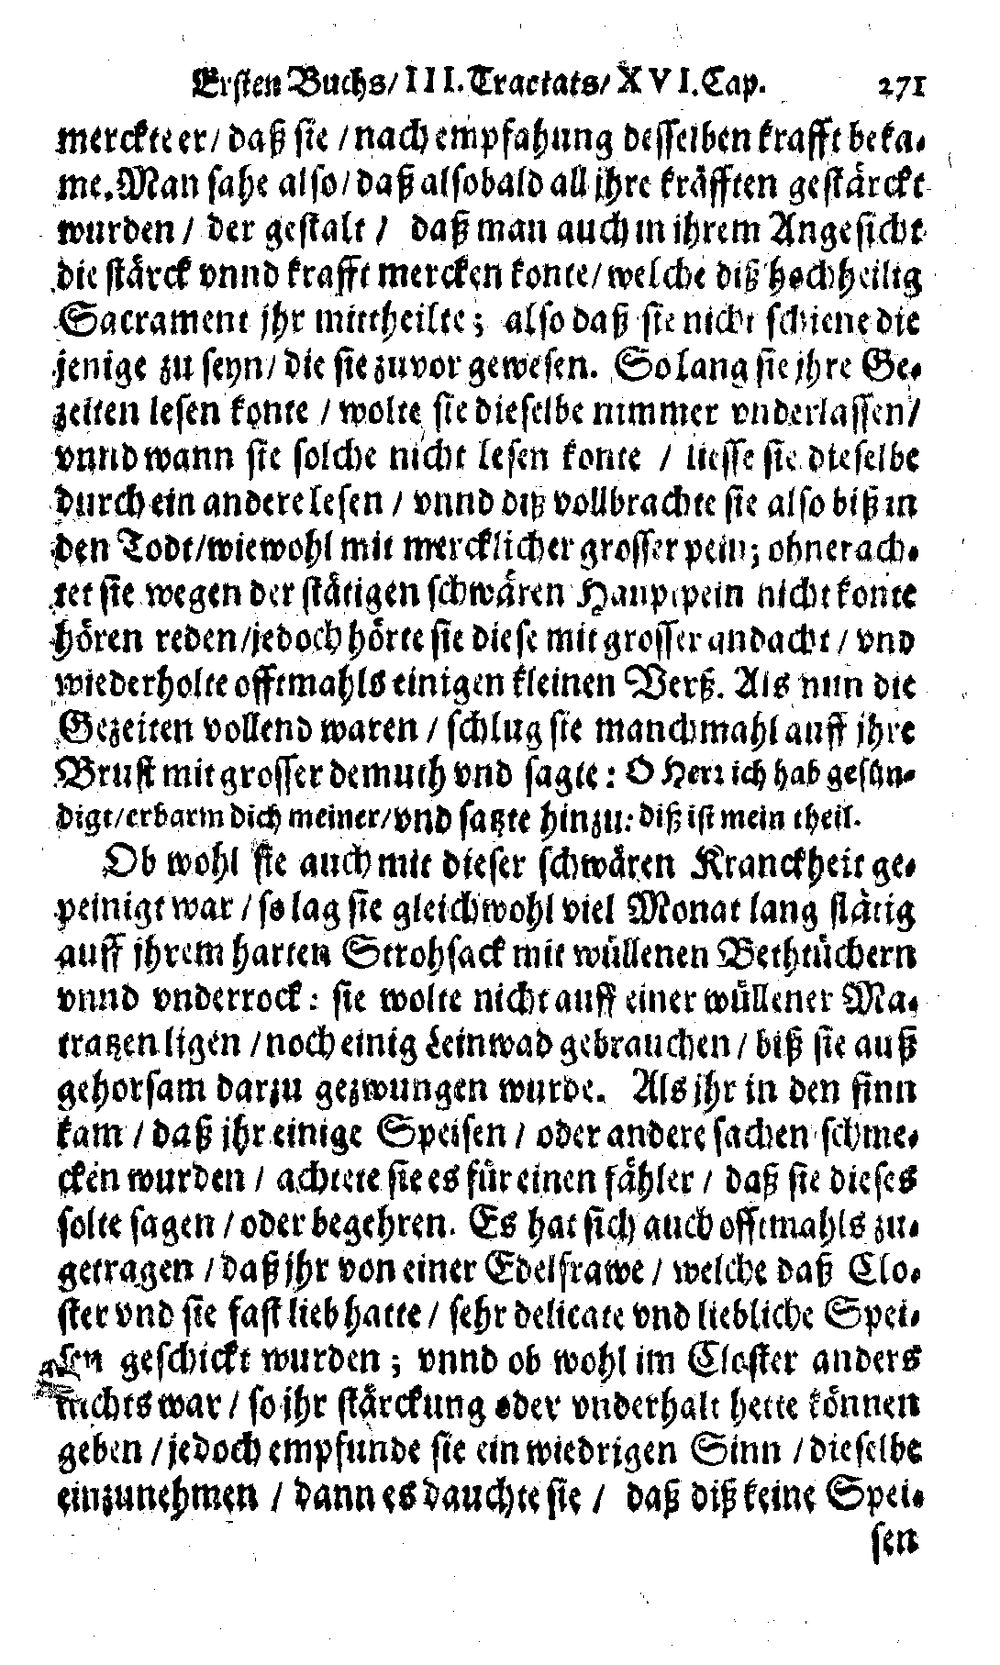 Ersten Buchs/ III. Tractats/ XVI. Cap. 271
merckte er/ daß sie / nach empfahung desselben krafft beka-
me. Man sahe also/ daß alsobald all jhre kräfften gestärckt
wurden / der gestalt / daß man auch in ihrem Angesicht
die stärck vnnd krafft mercken konte/ welche diß hochheilig
Sacrament jhr mittheilte; also daß sie nicht schiene die
jenige zu seyn/ die sie zuvor gewesen. So lang sie jhre Ge-
zeiten lesen konte / wolte sie dieselbe nimmer vnderlassen/
vnnd wann sie solche nicht lesen konte / liesse sie dieselbe
durch ein andere lesen / vnnd diß vollbrachte sie also biß in
den Todt/ wiewohl mit mercklicher grosser pein; ohnerach-
tet sie wegen der stätigen schwären Hauptpein nicht konte
hören reden/ jedoch hörte sie diese mit grosser andacht / vnd
wiederholte offtmahls einigen kleinen Verß. Als nun die
Gezeiten vollend waren / schlug sie manchmahl auff jhre
Brust mit grosser demuth vnd sagte: O Herr ich hab gesün-
digt/ erbarm dich meiner/ vnd satzte hinzu: diß ist mein theil.
Ob wohl sie auch mit dieser schwären Kranckheit ge-
peinigt war / so lag sie gleichwohl viel Monat lang stätig
auff jhrem harten Strohsack mit wüllenen Bethtüchern
vnnd vnderrock: sie wolte nicht auff einer wüllener Ma-
tratzen ligen / noch einig Leinwad gebrauchen / biß sie auß
gehorsam darzu gezwungen wurde. Als jhr in den sinn
kam / daß jhr einige Speisen / oder andere sachen schme-
cken wurden / achtete sie es für einen fähler / daß sie dieses
solte sagen / oder begehren. Es hat sich auch offtmahls zu-
getragen / daß jhr von einer Edelfrawe / welche daß Clo-
ster vnd sie fast lieb hatte / sehr delicate vnd liebliche Spei-
sen geschickt wurden; vnnd ob wohl im Closter anders
nichts war / so jhr stärckung oder vnderhalt hette können
geben / jedoch empfunde sie ein wiedrigen Sinn / dieselbe
einzunehmen / dann es dauchte sie / daß diß keine Spei-
sen